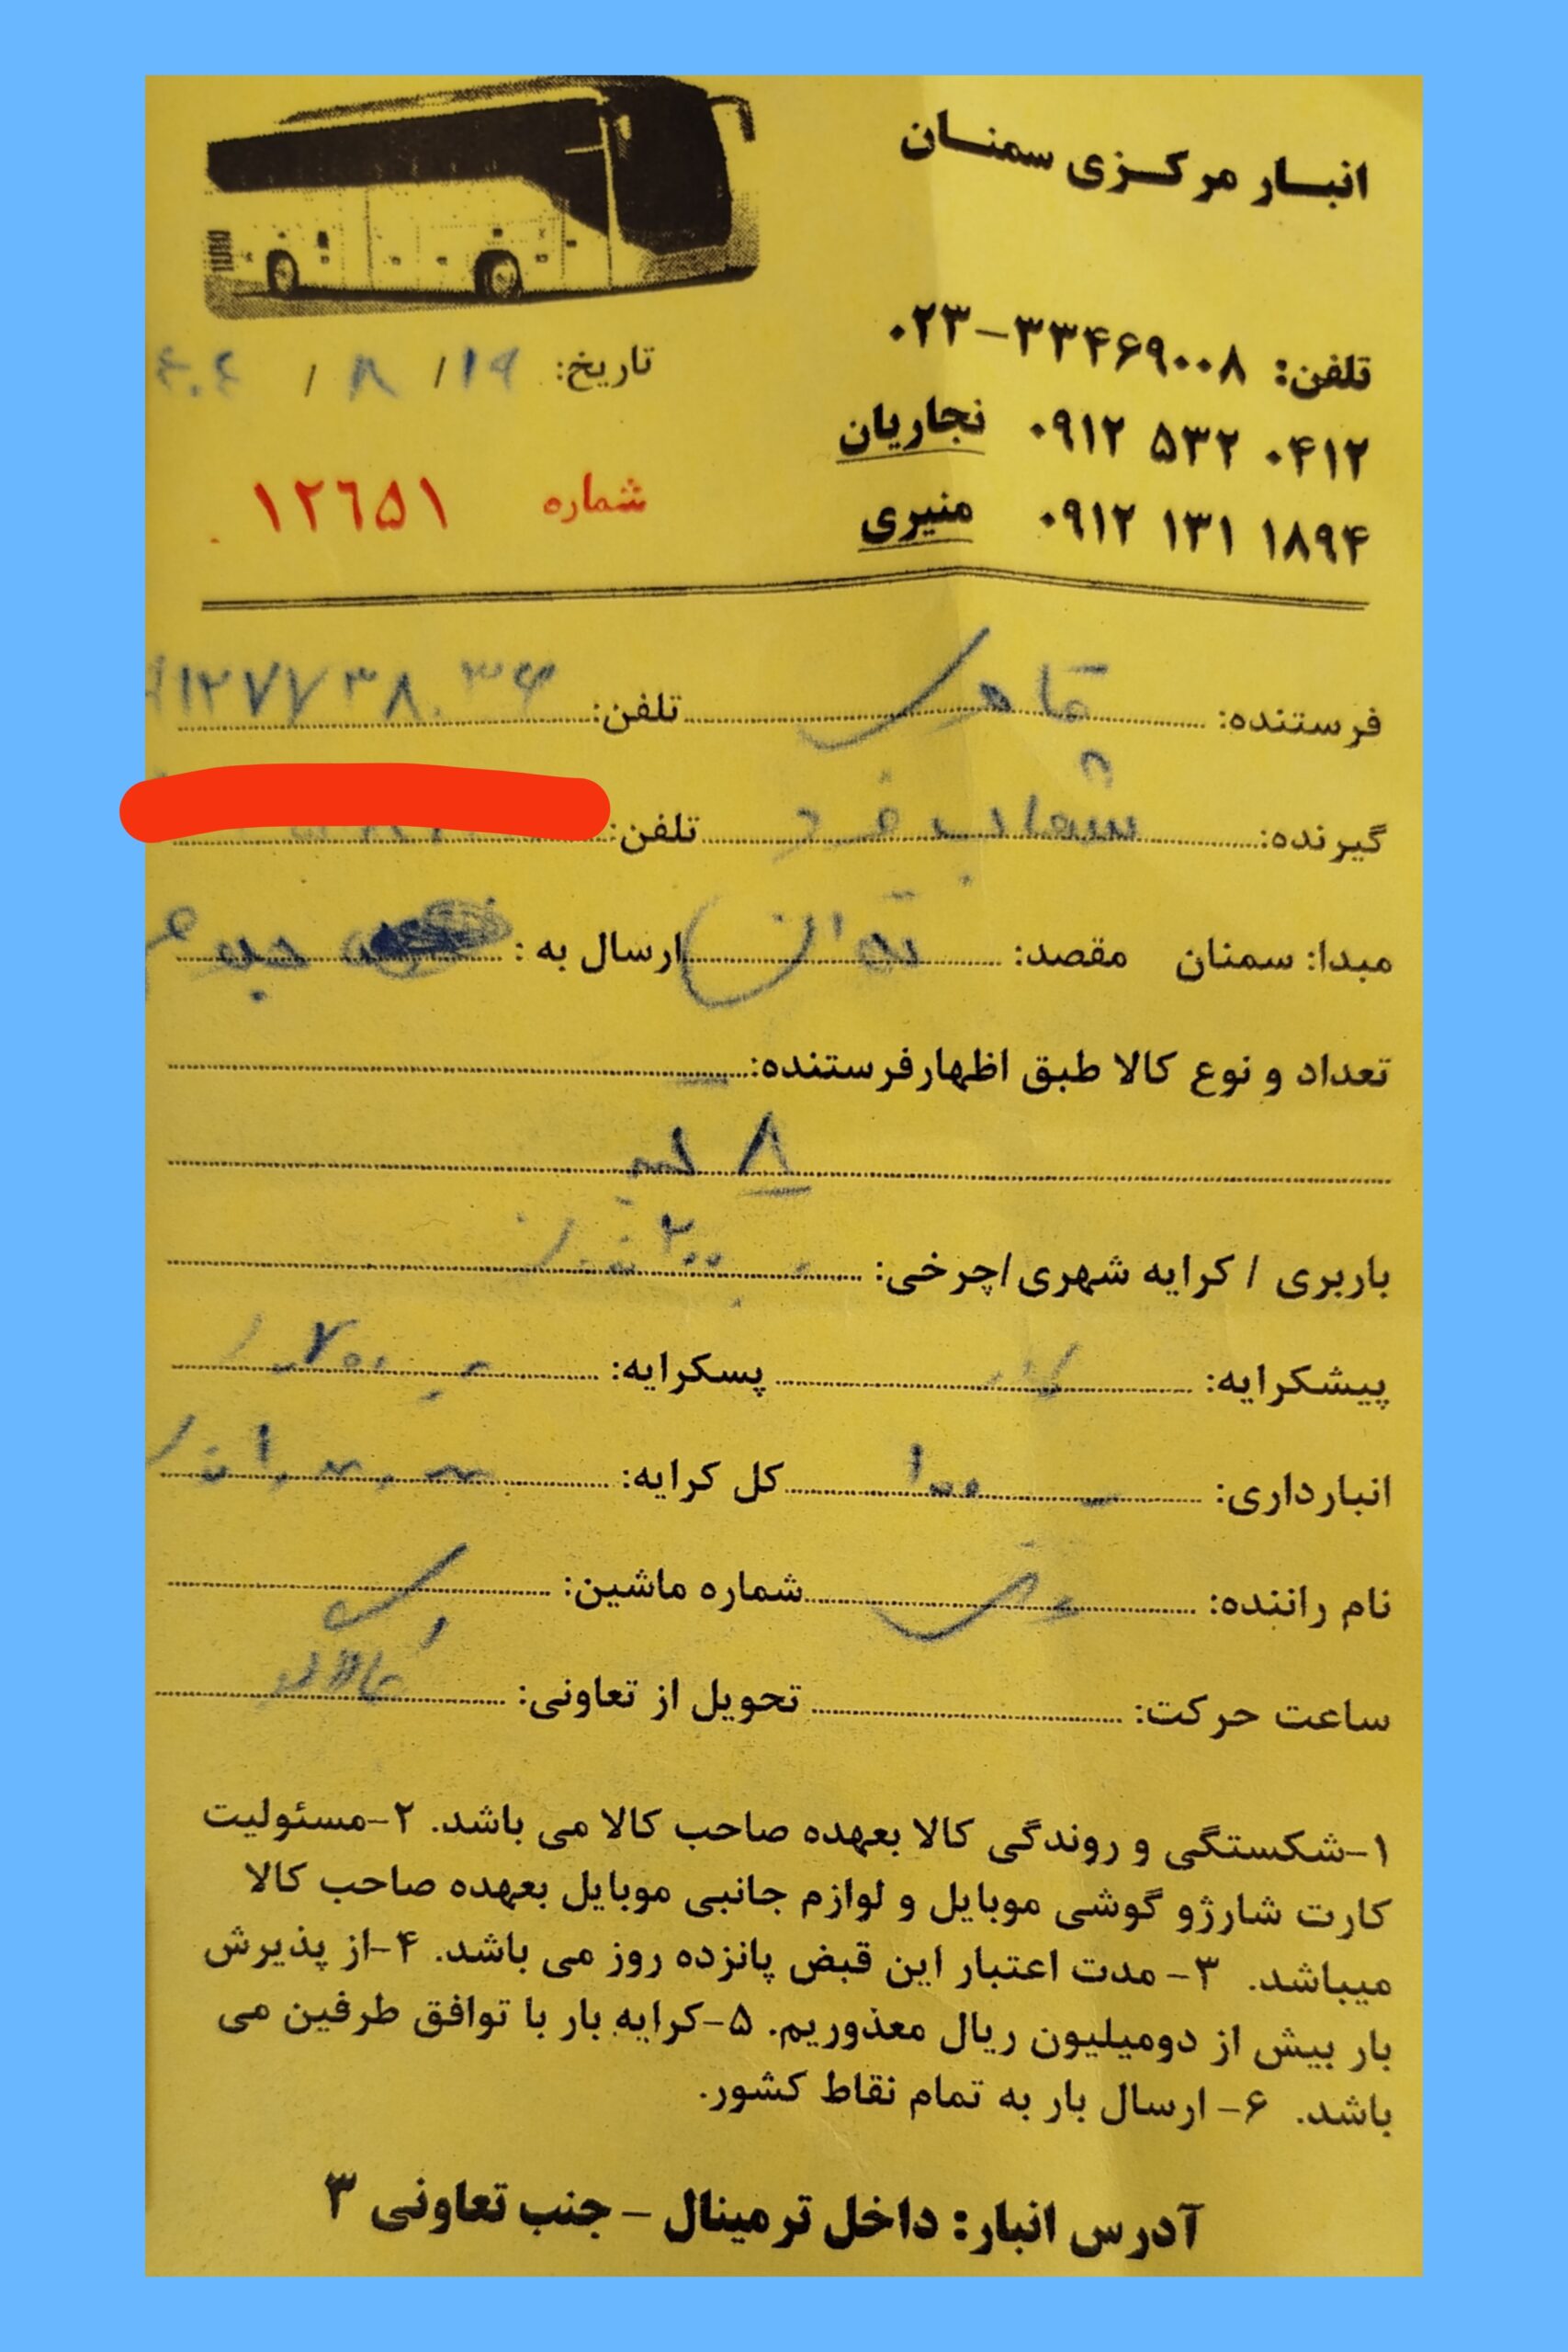 انبار مرکزی سمنان
تلفن: ۰۲۳-۳۳۴۶۹۰۰۸
۰۹۱۲ ۵۳۲ ۰۴۱۲ نجاریان
۰۹۱۲ ۱۳۱ ۱۸۹۴ منیری
تاریخ: ۱۹ / ۸ / ۴۰۴
شماره ۱۲٦۵۱
فرستنده: تلفن: ۹۱۲۷۷۳۸۰۳۶
گیرنده: شهاب فرد تلفن:
مبدا: سمنان مقصد: تهران ارسال به :
تعداد و نوع کالا طبق اظهارفرستنده:
۸
باربری / کرایه شهری/چرخی:
پیشکرایه: پسکرایه:
انبارداری: کل کرایه:
نام راننده: شماره ماشین:
ساعت حرکت: تحویل از تعاونی:
۱-شکستگی و روندگی کالا بعهده صاحب کالا می باشد. ۲-مسئولیت
کارت شارژو گوشی موبایل و لوازم جانبی موبایل بعهده صاحب کالا
میباشد. ۳- مدت اعتبار این قبض پانزده روز می باشد. ۴-از پذیرش
بار بیش از دومیلیون ریال معذوریم. ۵-کرایه بار با توافق طرفین می
باشد. ۶- ارسال بار به تمام نقاط کشور.
آدرس انبار: داخل ترمینال - جنب تعاونی ۳